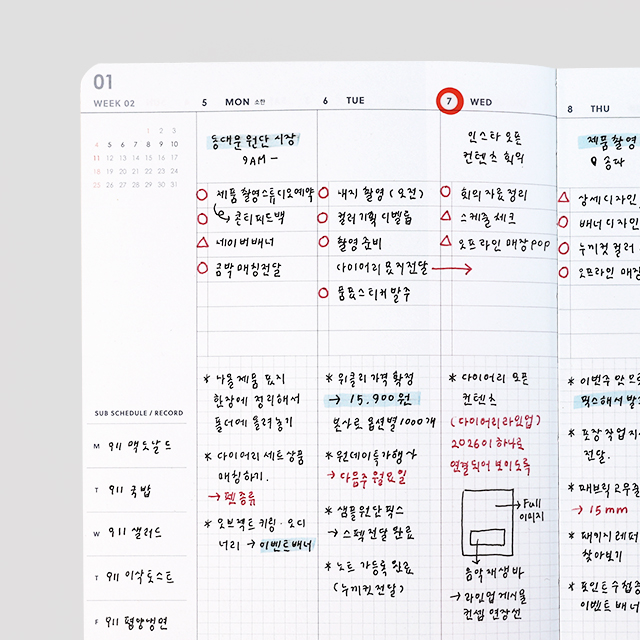 01
WEEK 02
1 2 3
4 5 6 7 8 9 10
11 12 13 14 15 16 17
18 19 20 21 22 23 24
25 26 27 28 29 30 31
SUB SCHEDULE / RECORD
M 점심 맥도날드
T 점심 국밥
W 점심 샐러드
T 점심 이삭토스트
F 점심 평양냉면
5 MON 소한
동대문 원단 시장
9AM -
제품 촬영 스튜디오 예약
콘티 피드백
네이버 배너
금박 매칭 전달
* 나올 제품 표지
한장에 정리해서
폴더에 올려놓기
* 다이어리 세트 상품
매칭하기.
→ 펜 종류
* 오브젝트 키링 · 오디
너리 → 이벤트 배너
6 TUE
내지 촬영 (오전)
컬러 기획 디벨롭
촬영 준비
다이어리 묘지전달 →
품묘 스티커 발주
* 위클리 가격 확정
→ 15,900원
본사로 옵션별 1000개
* 원데이 특가 행사
→ 다음주 월요일
* 샘플 원단 픽스
→ 스펙 전달 완료
* 노트 가등록 완료
(누끼컷 전달)
7 WED
인스타 오픈
컨텐츠 회의
회의 자료 정리
스케줄 체크
오프라인 매장 POP
* 다이어리 오픈
컨텐츠
(다이어리 라인업)
2026이 하나로
연결되어 보이도록
→ Full
이미지
음악 재생 바
→ 라인업 게시물
컨셉 연장선
8 THU
제품 촬영
상세 디자인
배너 디자인
누끼컷 컬러
오프라인 매장
* 이번주 안으로
픽스해서
* 포장 작업
전달.
* 패브릭
→ 15mm
* 패키지 레퍼
찾아보기
* 포인트
이벤트 배너